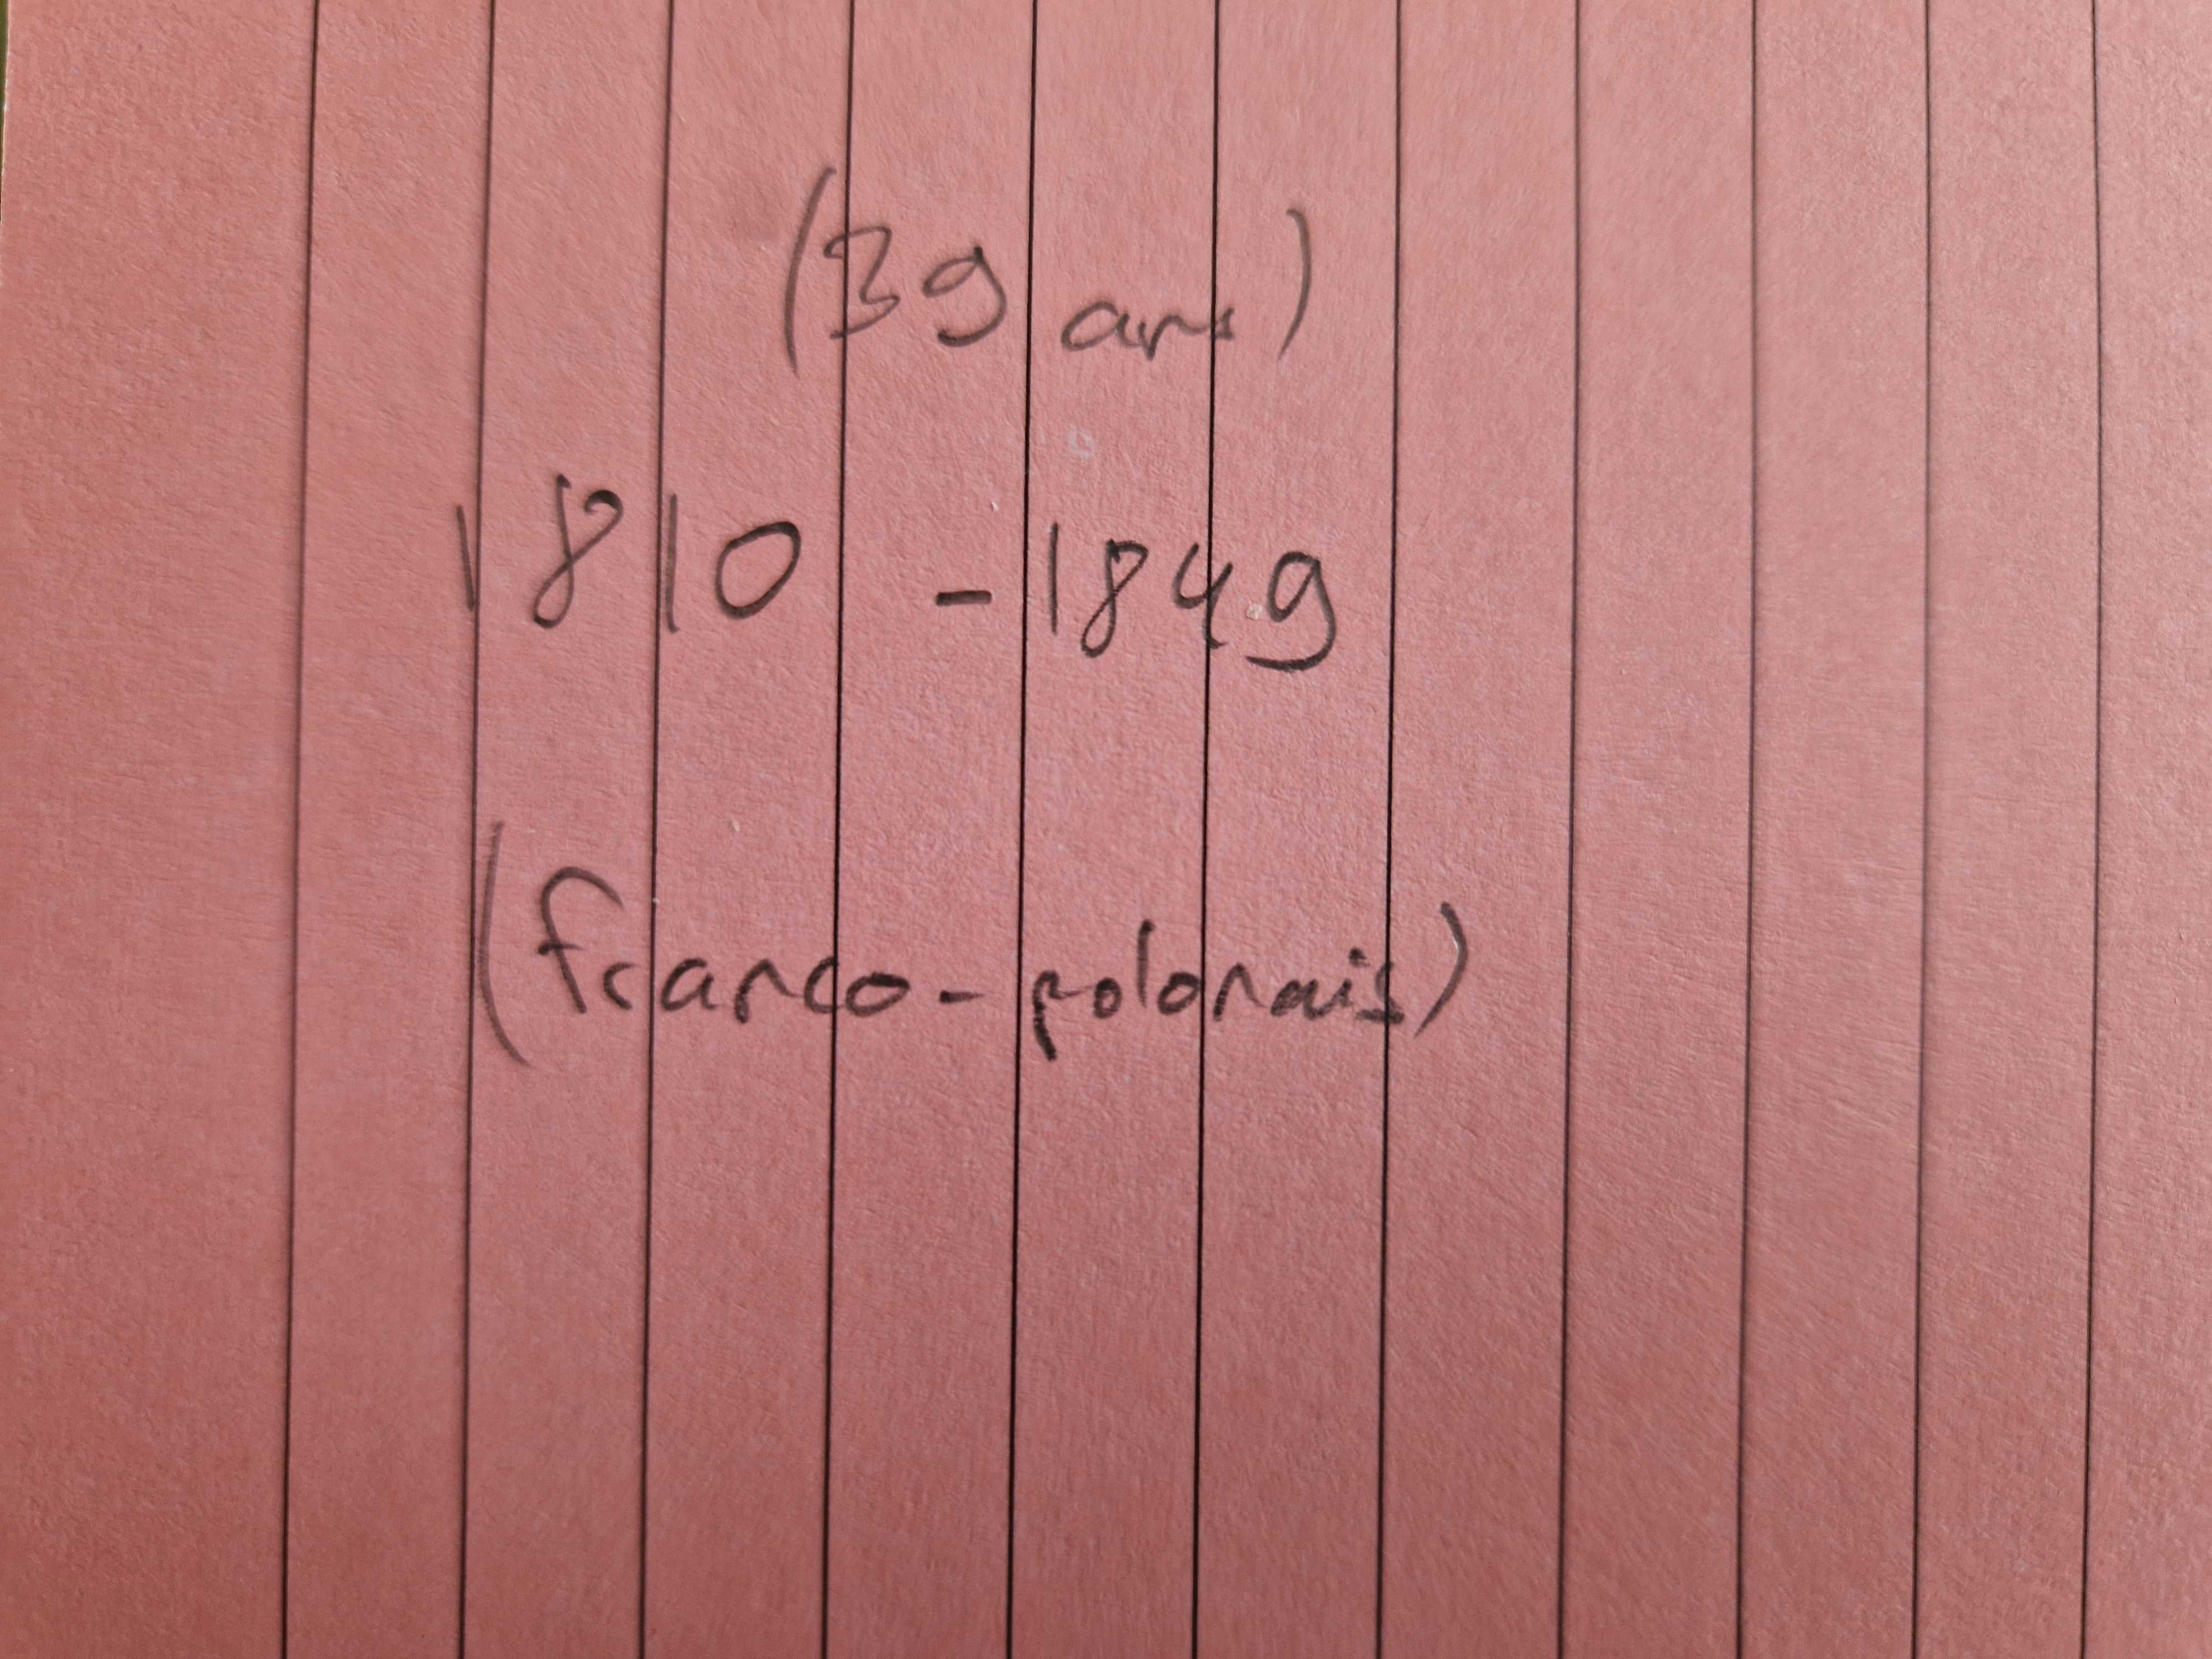 (39 ans)
1810 - 1849
(franco-polonais)